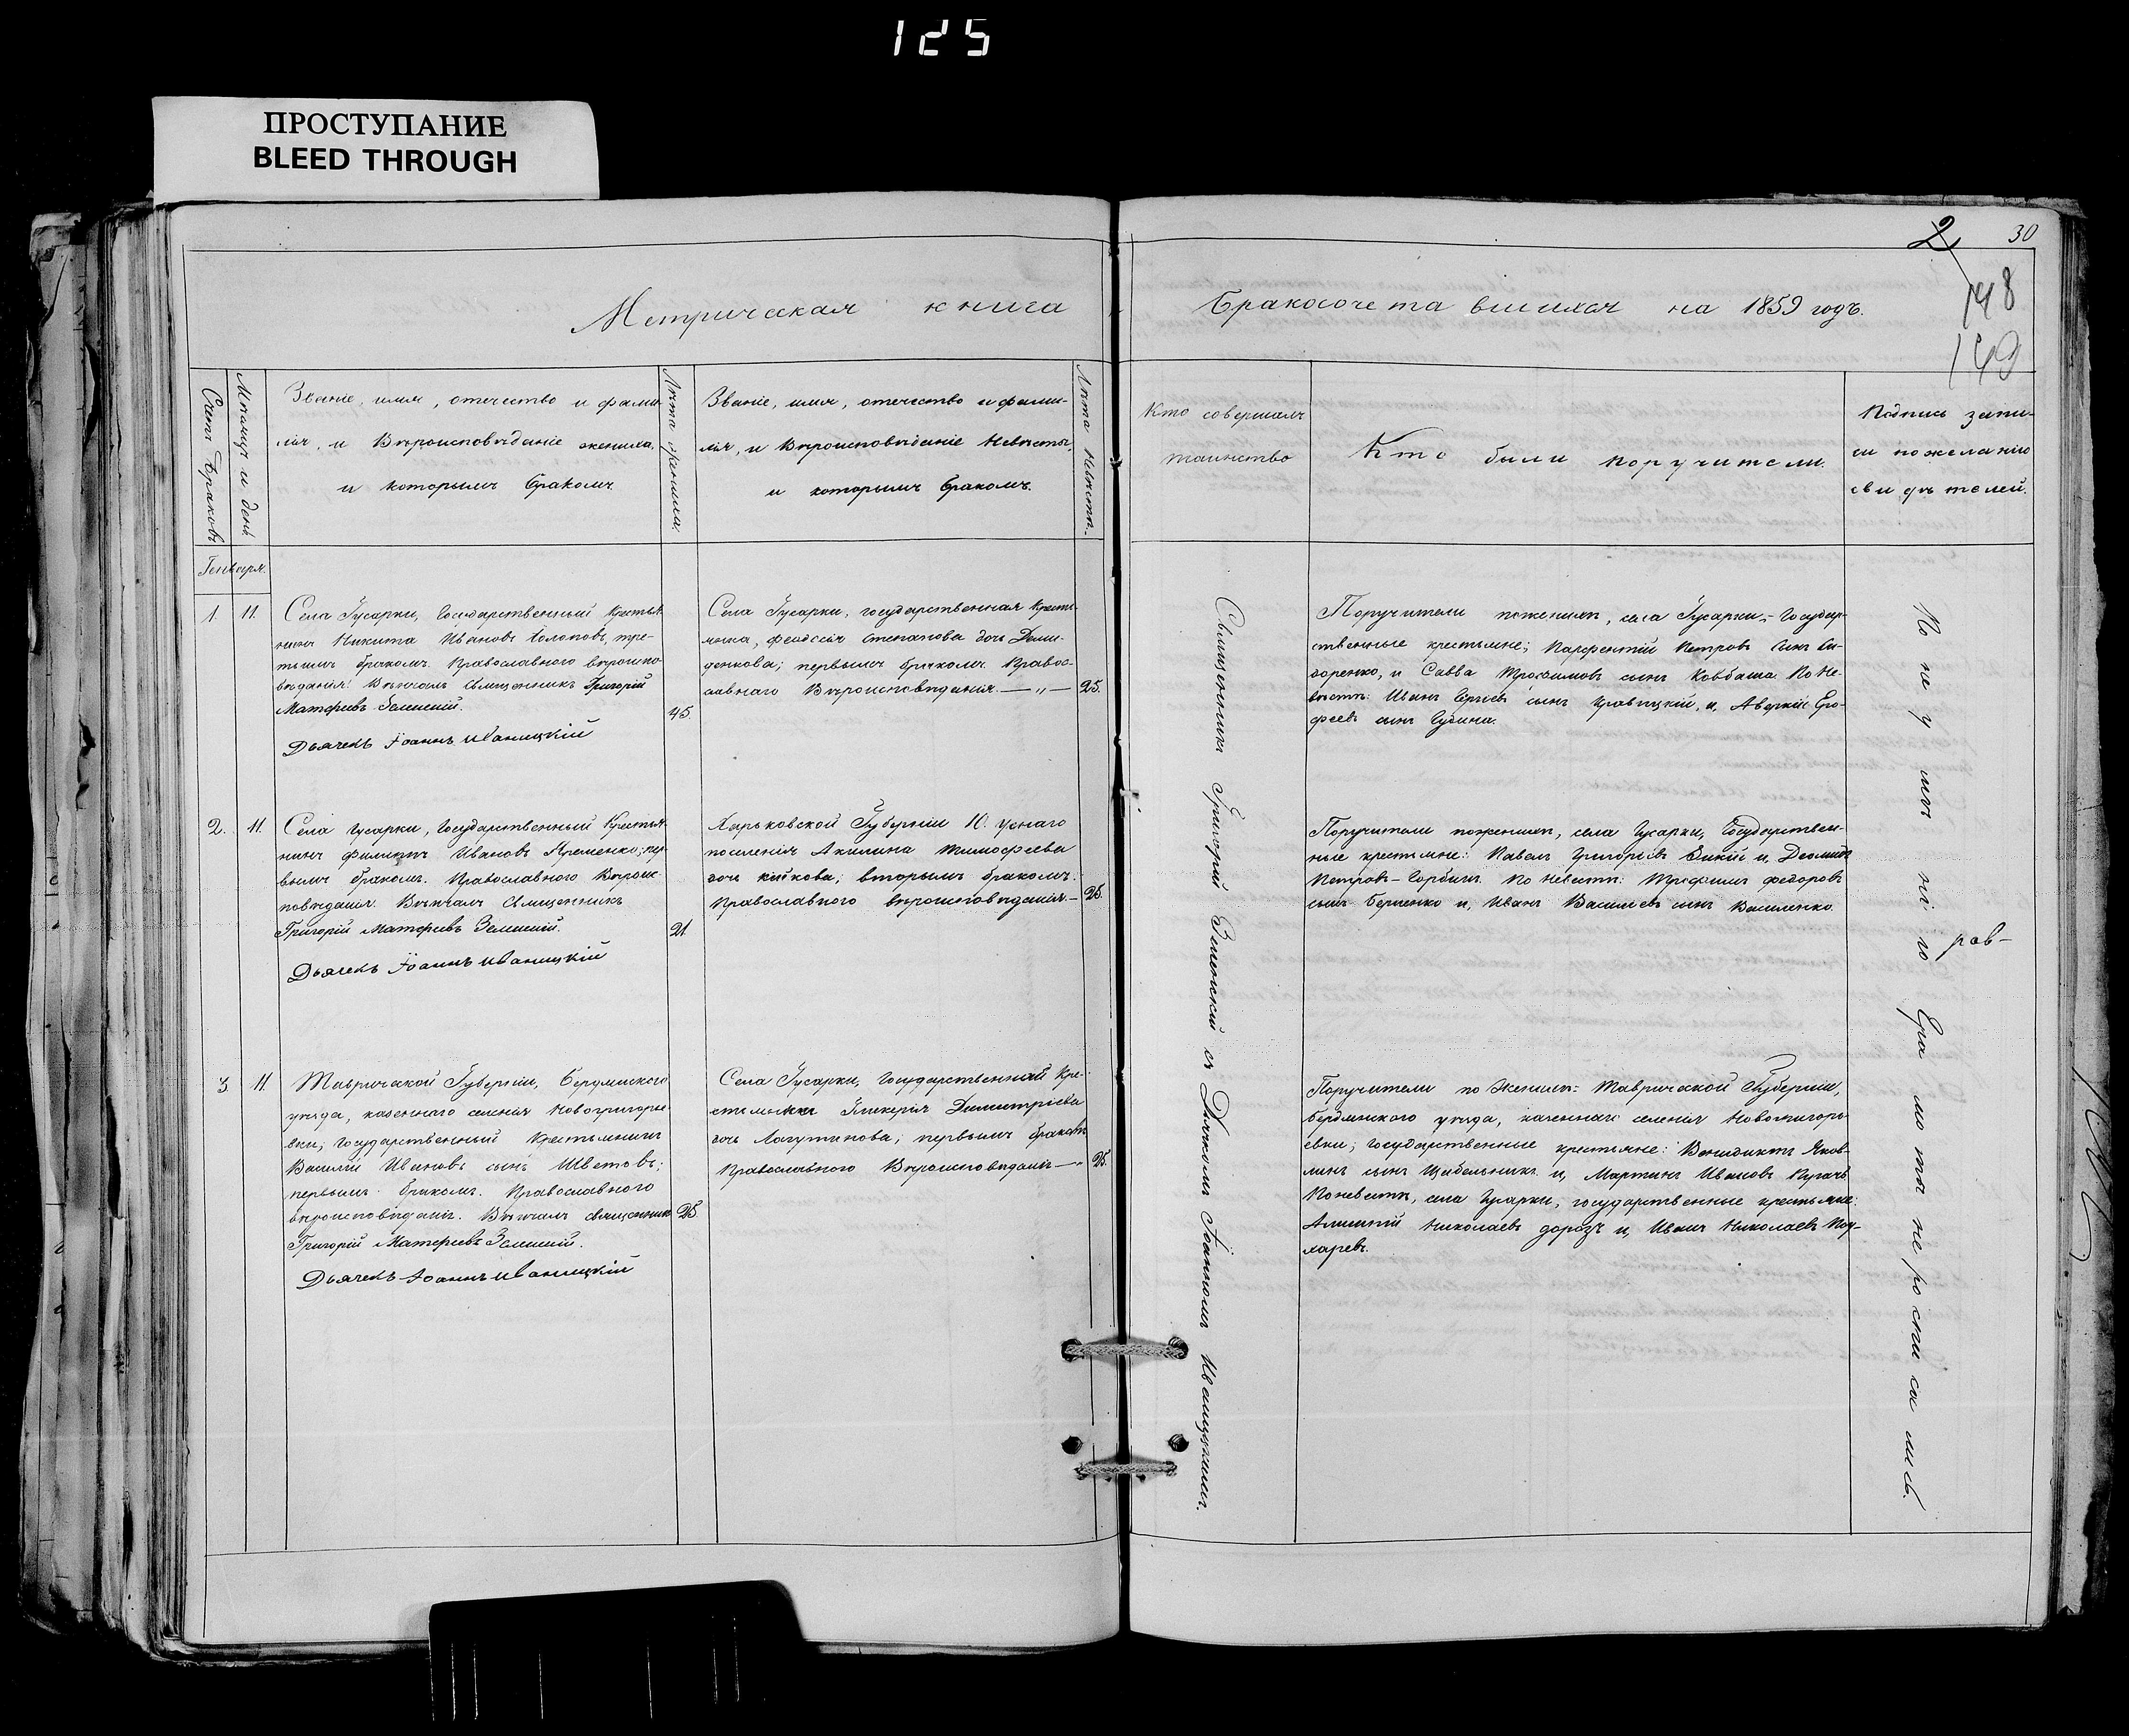 125
ПРОСТУПАНИЕ
BLEED THROUGH
2 30
148
149
Метрическая книга
Бракосочетавшихся на 1859 годъ.
Счетъ браковъ
Мѣсяцъ и день
Званіе, имя, отечество и фами-
лія, и Вѣроисповѣданіе жениха,
и которымъ бракомъ.
Лѣта жениха.
Званіе, имя, отечество и фами-
лія, и Вѣроисповѣданіе Невѣсты,
и которымъ бракомъ.
Лѣта Невѣсты.
Кто совершалъ
таинство
Кто были поручители.
Подпись запи-
си по желанію
свидѣтелей.
Генваря.
1. 11.
Села Гусарки, Государственный Крестья-
нинъ Никита Ивановъ Холоповъ, тре-
тьимъ бракомъ. Православного вѣроиспо-
вѣданія. Вѣнчалъ Священникъ Григорій
Матфеевъ Зеленскій.
Дьячекъ Іоаннъ Иваницкій
45.
Села Гусарки, государственная Кресть-
янка, Феодосія Степанова дочь Деми-
денкова; первымъ бракомъ. Правос-
лавнаго Вѣроисповѣданія.—„—
25.
Поручители по женихѣ, села Гусарки, Государ-
ственные крестьяне; Парфентій Петровъ сынъ Си-
доренко, и Савва Трофимовъ сынъ Ковбаша. По Не-
вѣстѣ: Иванъ Сергѣевъ сынъ Кравицкій, и, Аверкій Еро-
феевъ сынъ
2. 11.
Села Гусарки, Государственный Крестья-
нинъ Филиппъ Ивановъ Яременко; пер-
вымъ бракомъ. Православного Вѣроис-
повѣданія. Вѣнчалъ Священникъ
Григорій Матфеевъ Зеленскій.
Дьячекъ Іоаннъ Иваницкій
21.
Харьковской Губерніи Ю.
поселенія Акилина Тимофеева
дочь Кийкова; вторымъ бракомъ.
Православного вѣроисповѣданія—
25.
Поручители по женихѣ, села Гусарки, Государствен-
ные крестьяне: Павелъ Григорьевъ и, Деомидъ
Петровъ Горбикъ. По Невестѣ: Трофимъ Федоровъ
сынъ и, Иванъ Васильевъ сынъ Василенко.
3 11
Таврической Губерніи, Бердянского
уѣзда, казеннаго селенія Новогригорье-
вки, Государственный Крестьянинъ
Василій Ивановъ сынъ Шветовъ;
первымъ бракомъ. Православного
вѣроисповѣданія. Вѣнчалъ священникъ
Григорій Матфеевъ Зеленскій.
Дьячекъ Іоаннъ Иваницкій
25.
Села Гусарки, Государственная Кре-
стьянка Гликерія Димитріева
дочь Лагутинова; первымъ бракомъ
Православного Вѣроисповѣданія—„
25.
Поручители по Женихѣ: Таврической Губерніи,
Бердянского уѣзда, казеннаго селенія Новогригорь-
евки; государственные крестьяне: Венидиктъ Яков-
линъ сынъ Щибельникъ и, Мартинъ Ивановъ Пугачъ.
По невестѣ, села Гусарки, государственные крестьяне:
Алимпій Николаевъ дорозъ и, Иванъ Николаевъ Пон-
маревъ.
Священникъ Григорій Зеленскій съ Дьячкомъ Іоанномъ Иваницкимъ.
По неумѣнію Грамоты не росписались.